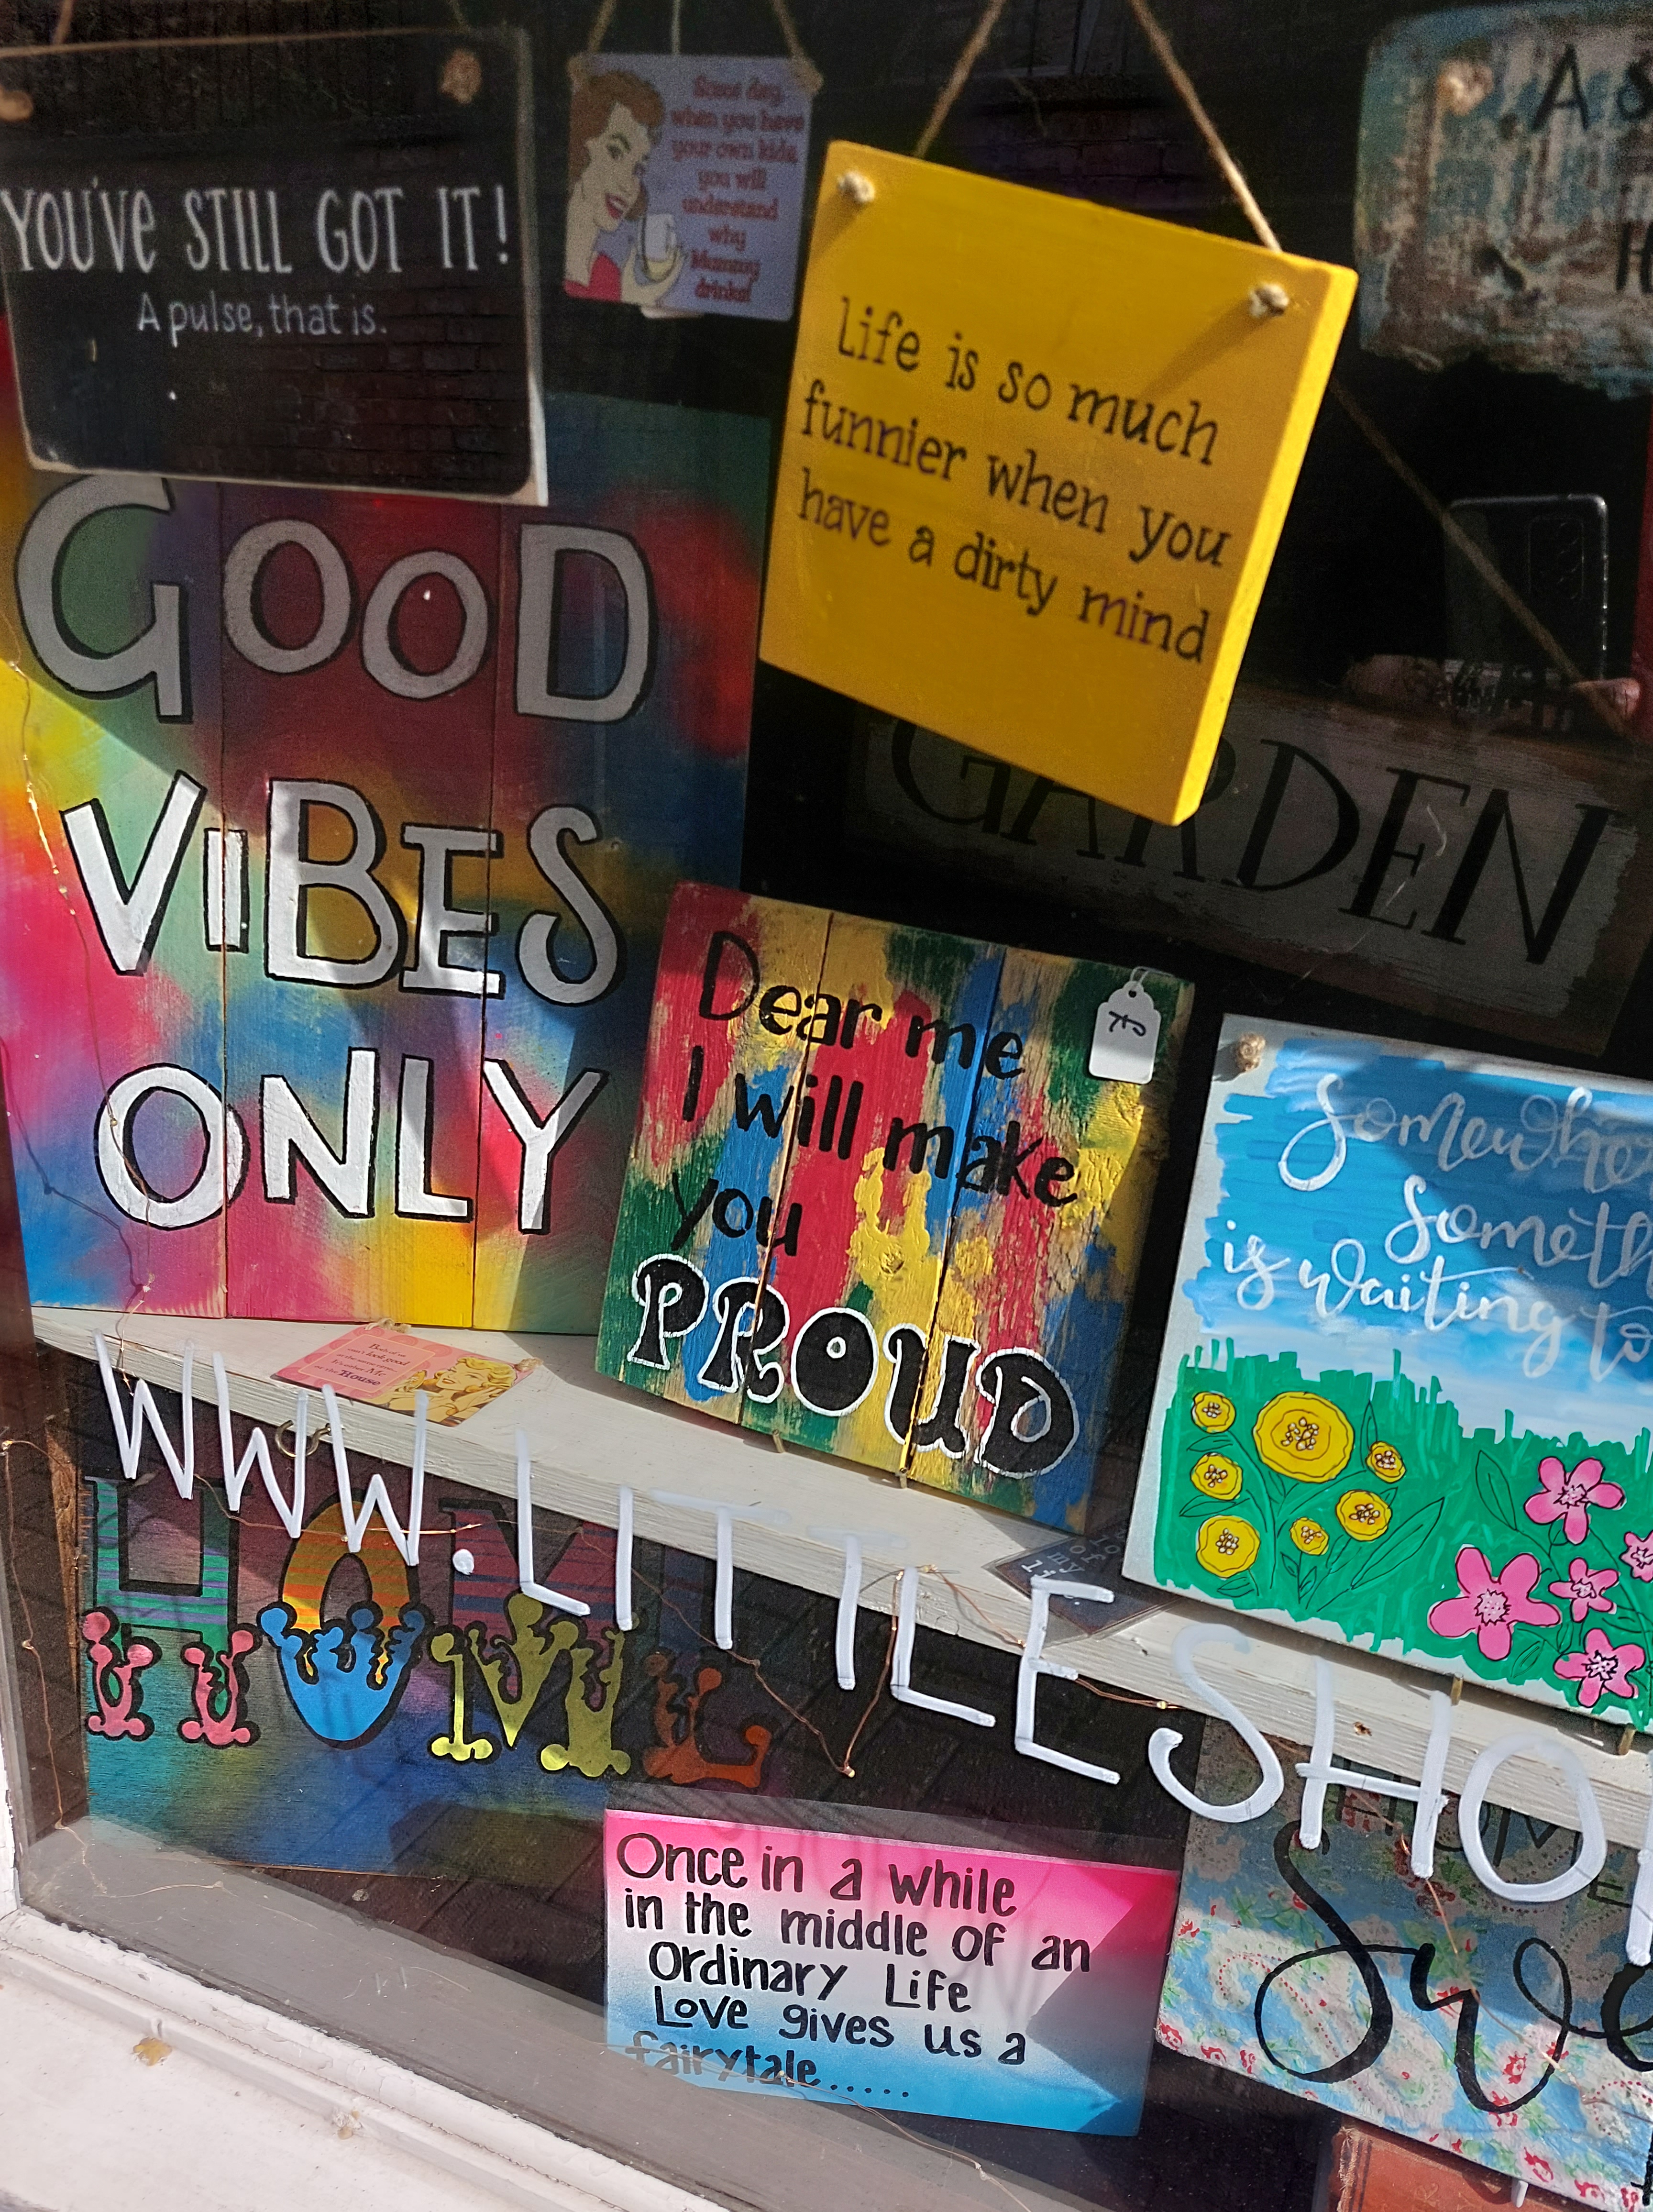 YOU'VE STILL GOT IT!
A pulse, that is.
Some day,
when you have
your own kids,
you will
understand
why
Mummy
drinks!
Life is so much
funnier when you
have a dirty mind
A
GOOD
VIBES
ONLY
GARDEN
Dear me
I will make
you
PROUD
is waiting to
Both of us
can't look good
at the same time
It's either Me
or the House
WWW.LITTLESHO
HOME
Once in a while
in the middle of an
Ordinary Life
Love gives us a
fairytale.....
HOME